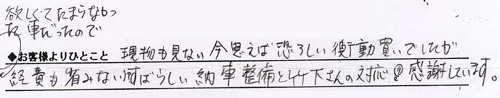 欲しくてたまらなかっ
た車だったので
◆お客様よりひとこと 現物も見ない今思えば恐ろしい衝動買いでしたが
経費も省みないすばらしい納車整備と竹下さんの対応に感謝しています。